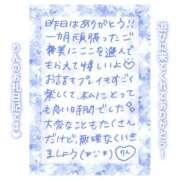 昨日はありがとう!!
一ヵ月頑張ったご
褒美にここを選んで
もらえて嬉しいよ
お話もプレイもすごく
楽しくて、私にとって
も良い時間でした。
大変なこともたくさん
だけど、無理なくいき
ましょう
りん
りんのお礼日記